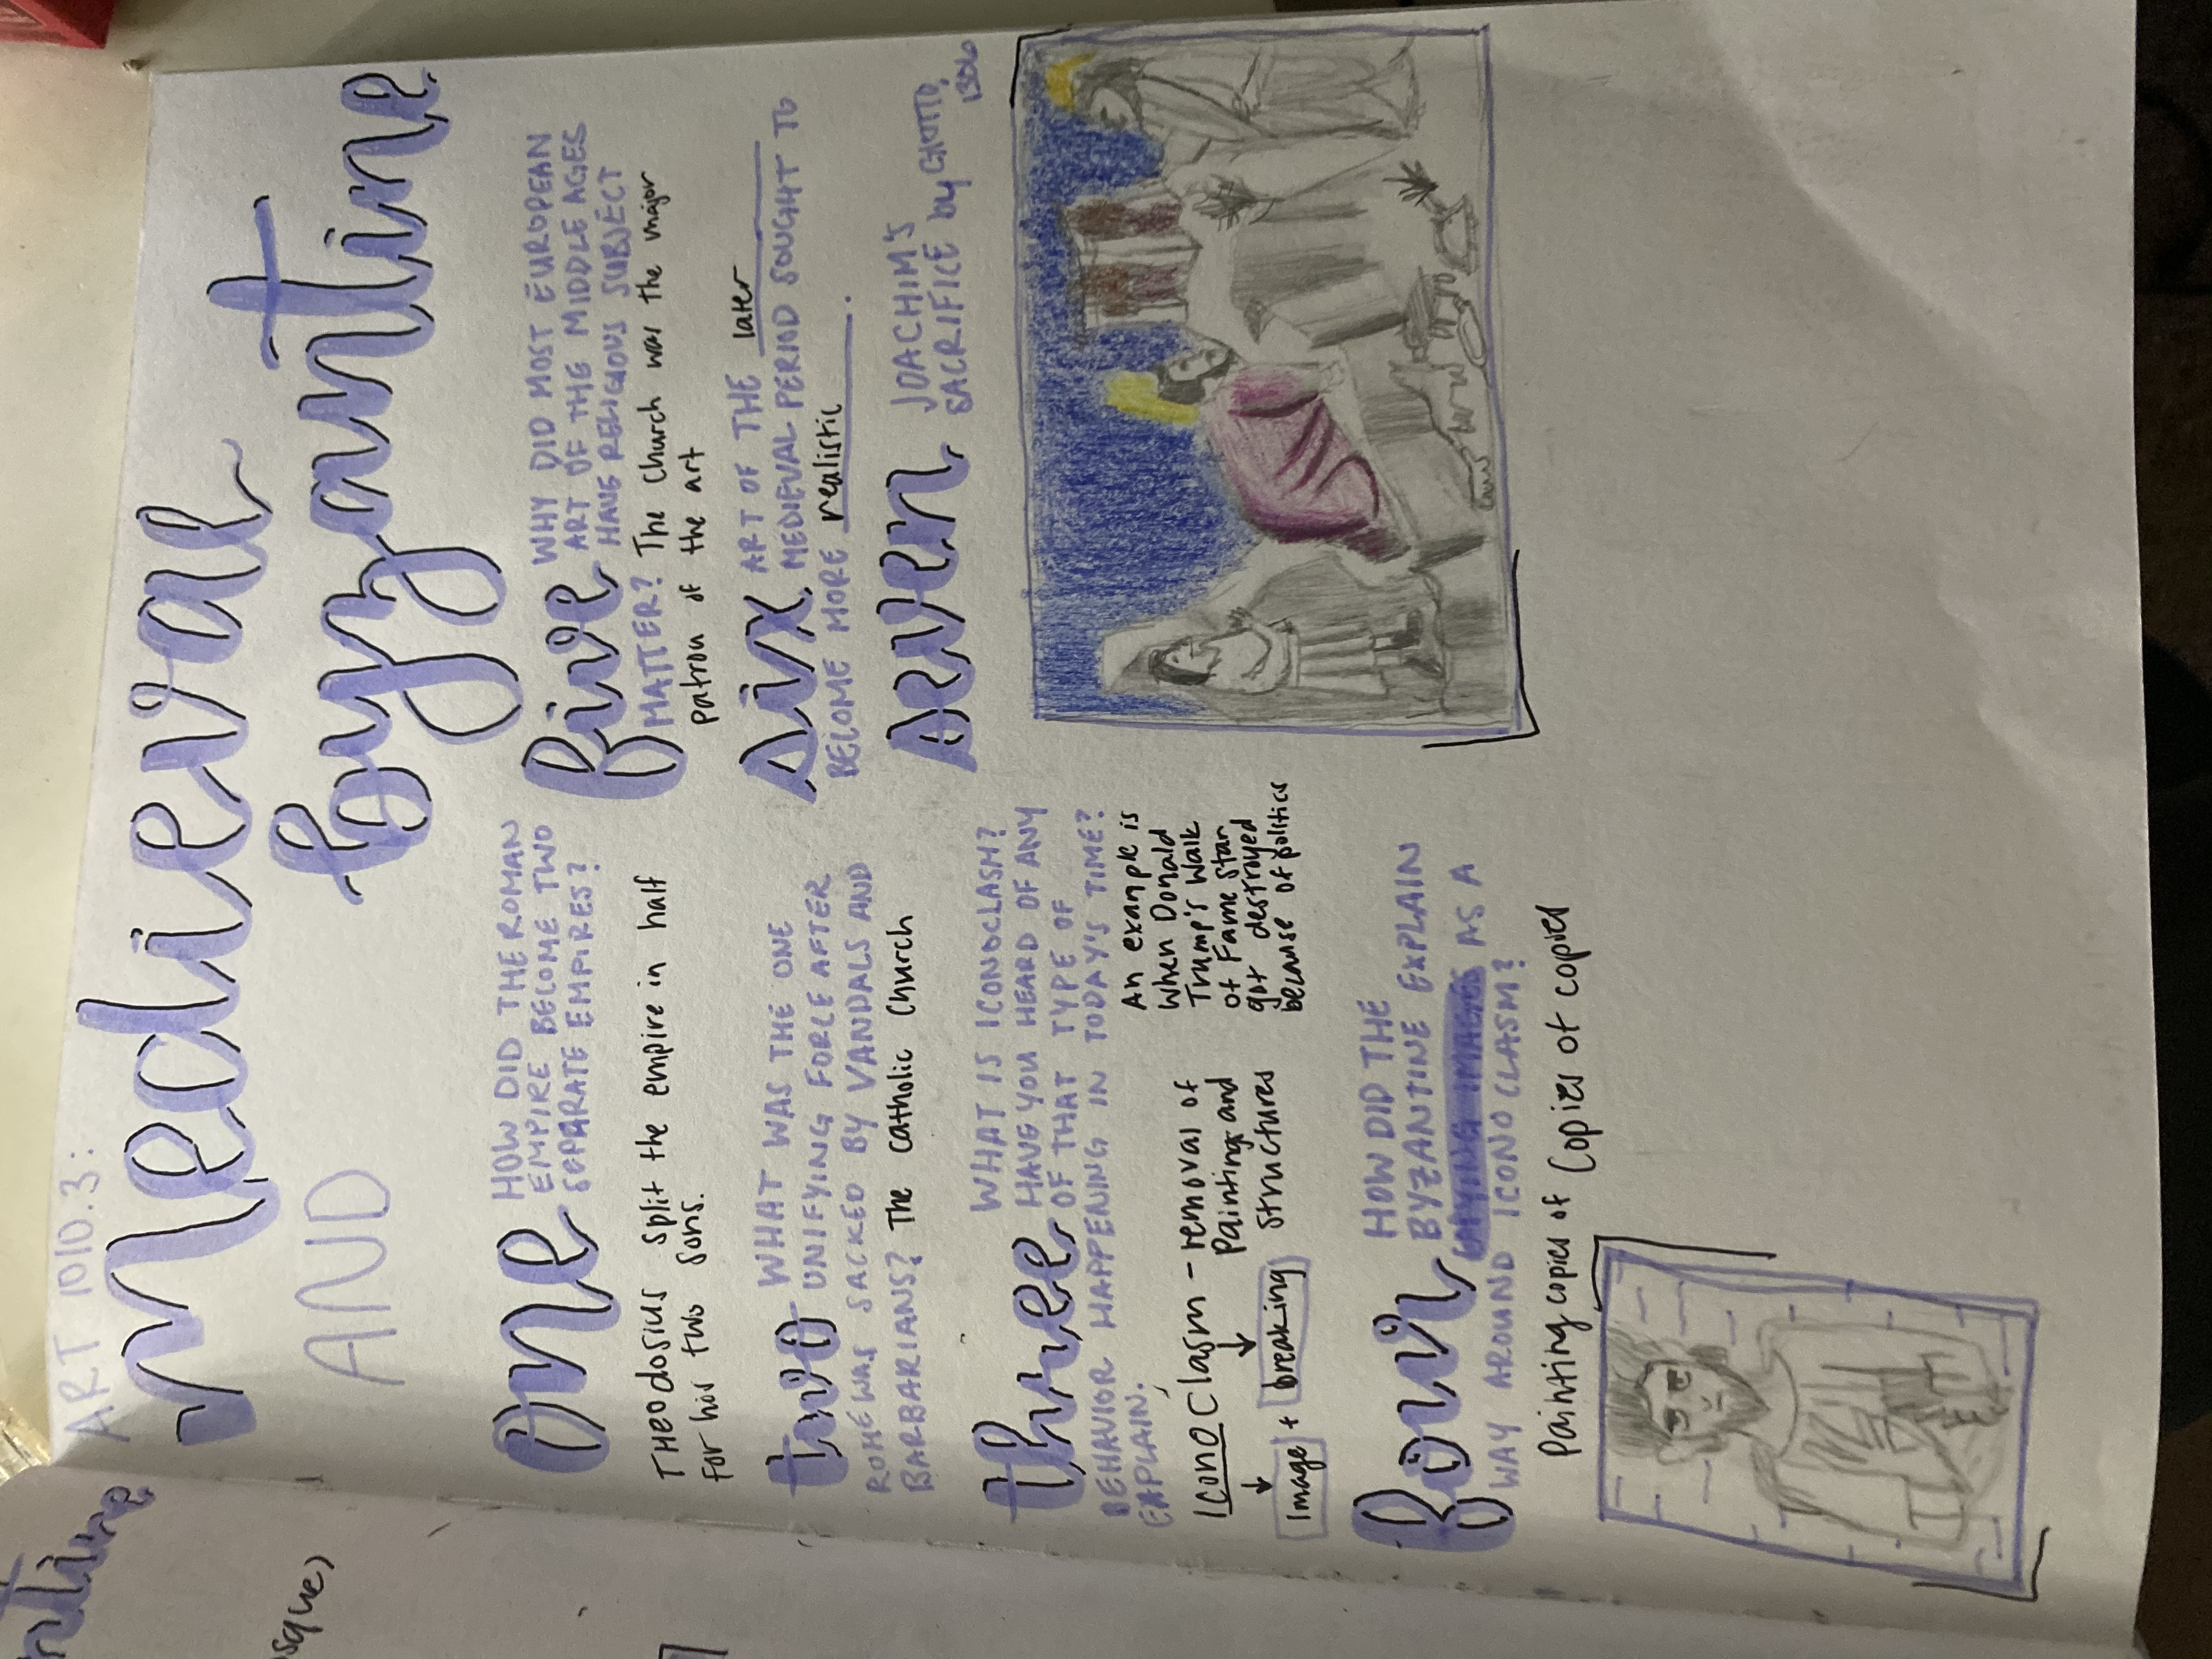 ntine
osque)
ART 1010.3:
medieval
AND
byzantine
one HOW DID THE ROMAN
EMPIRE BECOME TWO
SEPARATE EMPIRES?
THEodosius split the empire in half
for his two sons.
two WHAT WAS THE ONE
UNIFYING FORCE AFTER
ROME WAS SACKED BY VANDALS AND
BARBARIANS? The Catholic Church
three WHAT IS ICONOCLASM?
HAVE YOU HEARD OF ANY
OF THAT TYPE OF
BEHAVIOR HAPPENING IN TODAY'S TIME?
EXPLAIN.
Iconoclasm - removal of
Paintings and
structures
Image + breaking
An example is
when Donald
Trump's Walk
of Fame star
got destroyed
because of politics
four HOW DID THE
BYZANTINE EXPLAIN
COPYING IMAGES AS A
WAY AROUND ICONOCLASM?
Painting copies of copies of copies
five WHY DID MOST EUROPEAN
ART OF THE MIDDLE AGES
HAVE RELIGIOUS SUBJECT
MATTER? The church was the major
patron of the art
six ART OF THE later
MEDIEVAL PERIOD SOUGHT TO
BECOME MORE realistic.
seven JOACHIM'S
SACRIFICE by GIOTTO,
1306